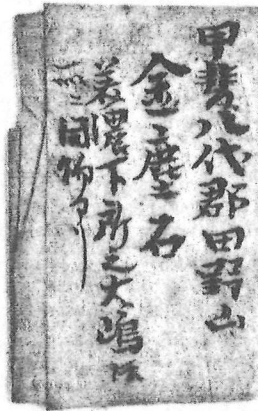 甲斐八代郡田野山
金塵石
美濃下所之大嶋
同物